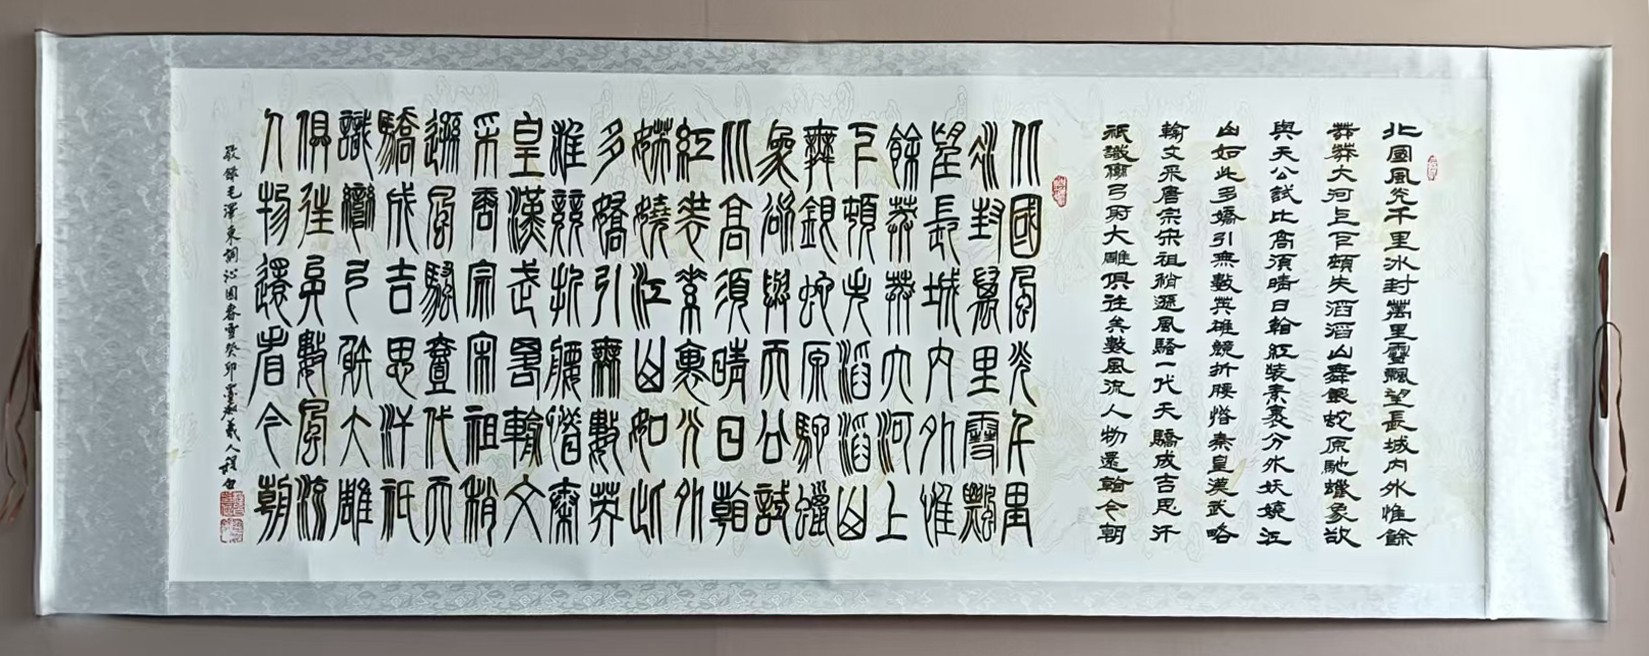 北國風光千里冰封萬里雪飄望長城內外惟餘
莽莽大河上下頓失滔滔山舞銀蛇原馳蠟象欲
與天公試比高須晴日看紅裝素裹分外妖嬈江
山如此多嬌引無數英雄競折腰惜秦皇漢武略
輸文采唐宗宋祖稍遜風騷一代天驕成吉思汗
祇識彎弓射大雕俱往矣數風流人物還看今朝
北國風光千里
冰封萬里雪飄
望長城內外惟
餘莽莽大河上
下頓失滔滔山
舞銀蛇原馳蠟
象欲與天公試
比高須晴日看
紅裝素裹分外
妖嬈江山如此
多嬌引無數英
雄競折腰惜秦
皇漢武略輸文
采唐宗宋祖稍
遜風騷壹代天
驕成吉思汗祇
識彎弓射大雕
俱往矣數風流
人物還看今朝
敬錄毛澤東詞沁園春雪癸卯